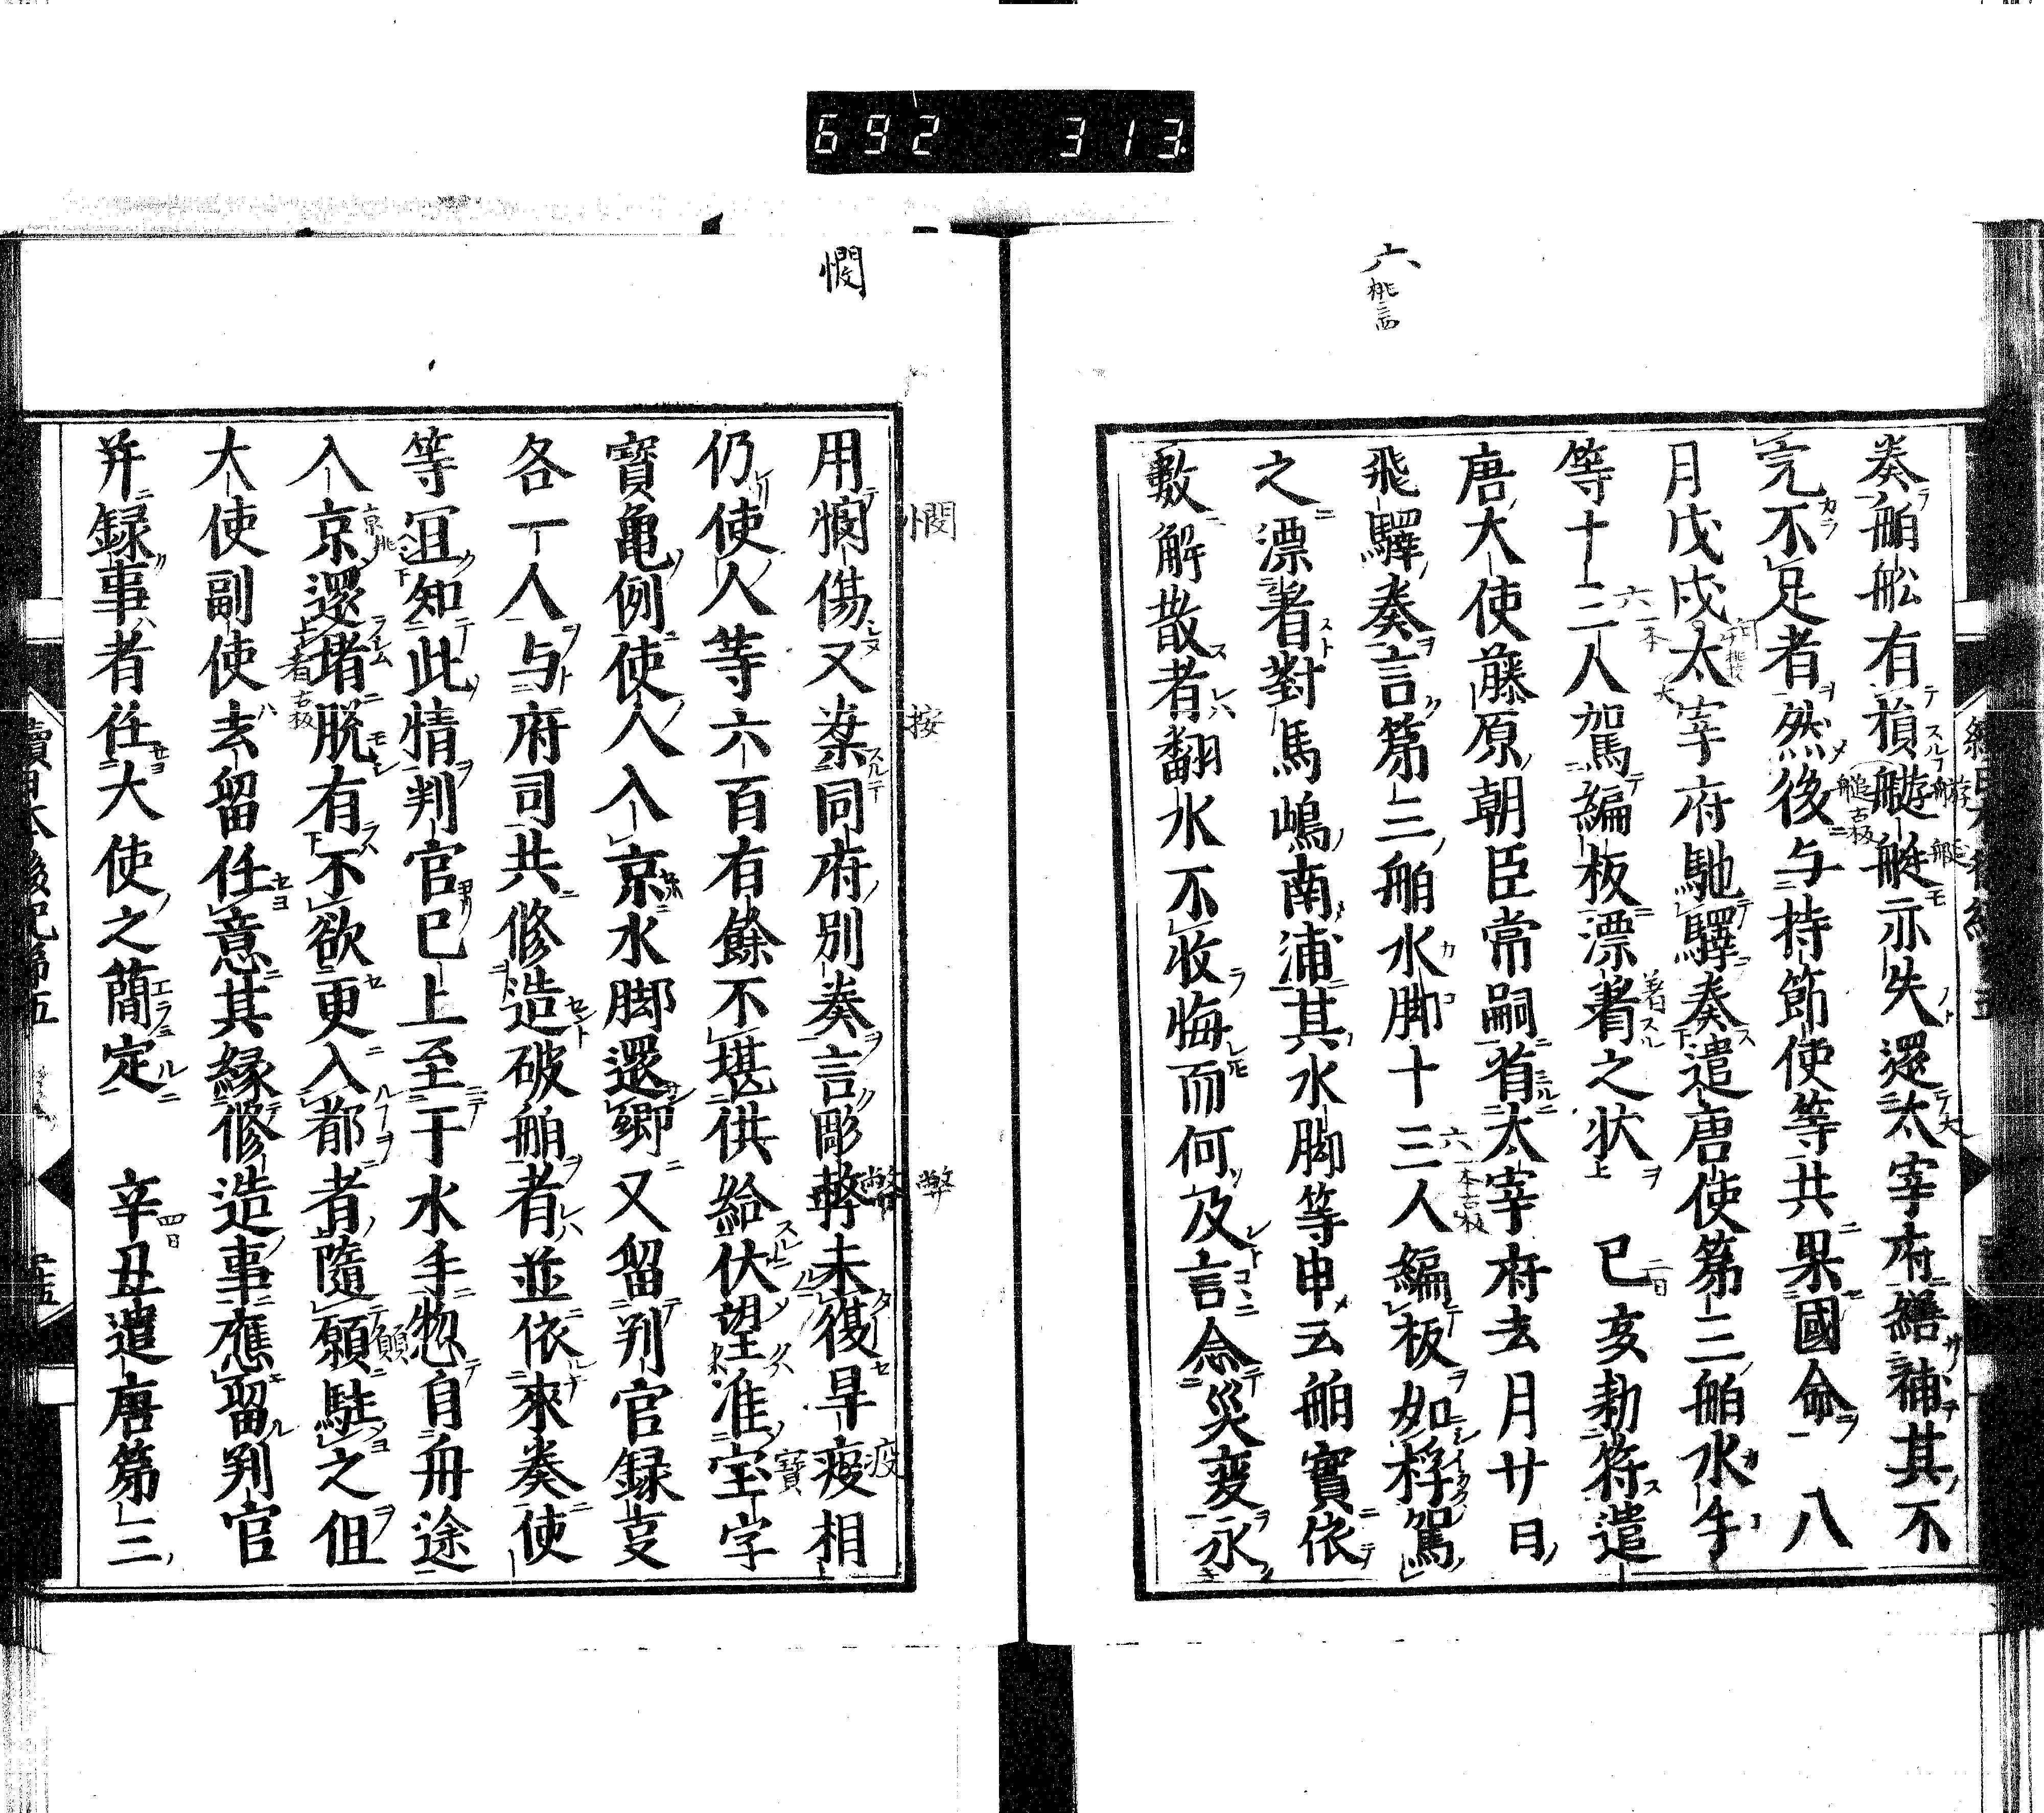 692 313
六
奏舶舩有損艀艇亦失還太宰府繕補其不
完不足者然後与持節使等共果國命 八
月戊戌太宰府馳驛奏遣唐使第三舶水手
等十二人駕編板漂着之状 己亥勅符遣
唐大使藤原朝臣常嗣省太宰府去月廿日
飛驛奏言第三舶水脚十三人編板如桴駕
之漂着對馬嶋南浦其水脚等申云舶實依
數解散者翻水不收悔而何及言念災变永
憫
用憫傷又案同府別奏言彫弊未復旱疫相
仍使人等六百有餘不堪供給伏望准宝字
寳亀例使人入京水脚還郷又留判官録事
各一人与府司共修造破舶者並依來奏使
等冝知此情判官已上至于水手惣自舟途
入京還堵脱有不欲更入都者隨願駐之但
大使副使去留任意其縁修造事應留判官
并録事者任大使之蕳定 辛丑遣唐第三
憫
按
弊